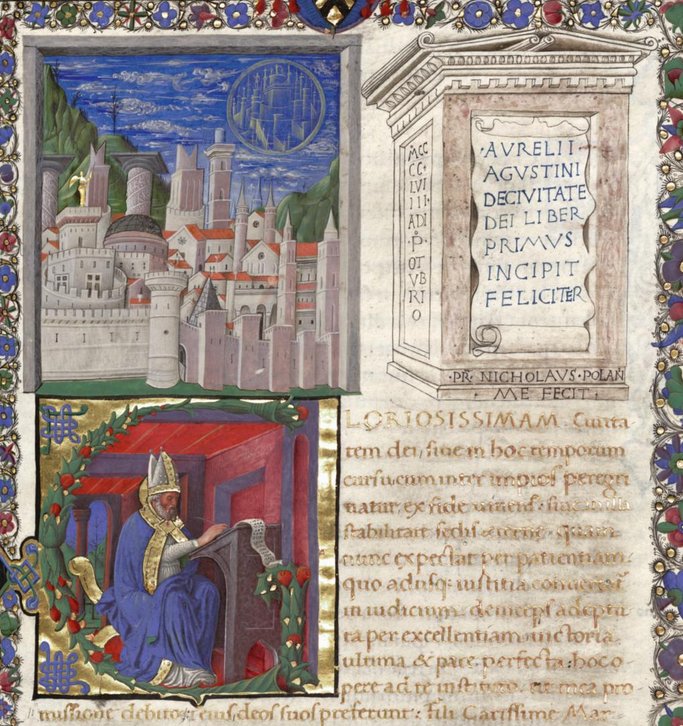 ·AVRELII·
AGUSTINI
DECIVITATE
DEI LIBER
PRIMVS
INCIPIT
FELICITER
ADI · P · OTVBRIO
·PR· NICHOLAVS·POLANI
ME FECIT·
LORIOSISSIMAM. Ciuita
tem dei, siue in hoc temporum
cursu cum inter impios peregri
natur ex fide uiuens, siue in illa
stabilitate sedis eterne, quam
nunc expectat per patientiam
quo adusq; iustitia
in iudicium, deinceps adeptu
ra per excellentiam uictoria
ultima, & pace perfecta, hoc o-
pere ad te instituto, et mea pro
missione debito eius, deos suos preferunt: fili Carissime Mar-